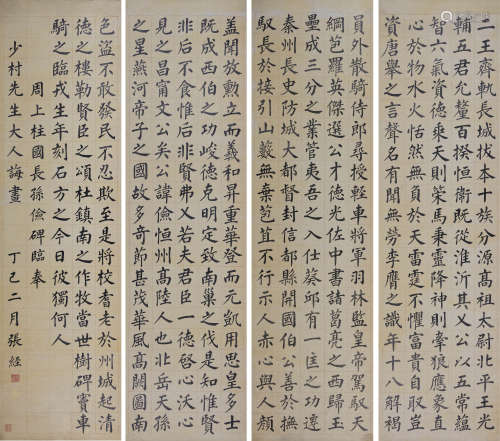 二王齊軌伐本十族分源太尉北平王光
輔五君允釐百揆恒衞旣從淮沂其乂公以五常蘊
智六氣資德乘天則策馬秉靈降神則牽狼應象直
心於物水火恬然無夭靈霆不懼富貴自取豈
資唐舉之言聲名有聞無勞李膺之識年十八解褐
員外散騎侍郎尋授輕車將軍羽林監皇帝駕馭天
綱苞羅英傑選公才德光佐中書諸葛亮之西歸玉
壘成三分之業管夷吾之入葵邱有一匡之功遷
秦州長史防城大都督封信都縣開國伯公善於撫
馭長於接引山藪無棄苞苴不行示人赤心與人顏
蓋聞放勳立而羲和昇重華登而元凱用思皇多士
既成西伯之功峻德克明定致南巢之伐是知惟賢
非后不食惟后非賢弗乂若夫君臣一德啓心沃心
見之昌甯文公矣公諱儉恒州高陸人也北岳天孫
之星燕河帝子之國故多奇節甚茂華風高闕圖南
色盜不敢發民不忍欺至是將校耆老於州城起清
德之樓勒賢臣之頌杜鎮南之作牧當世樹碑竇車
騎之臨戎生年刻石方之今日彼獨何人
周上柱國長孫儉碑臨奉
少村先生大人誨畫
丁巳二月張經